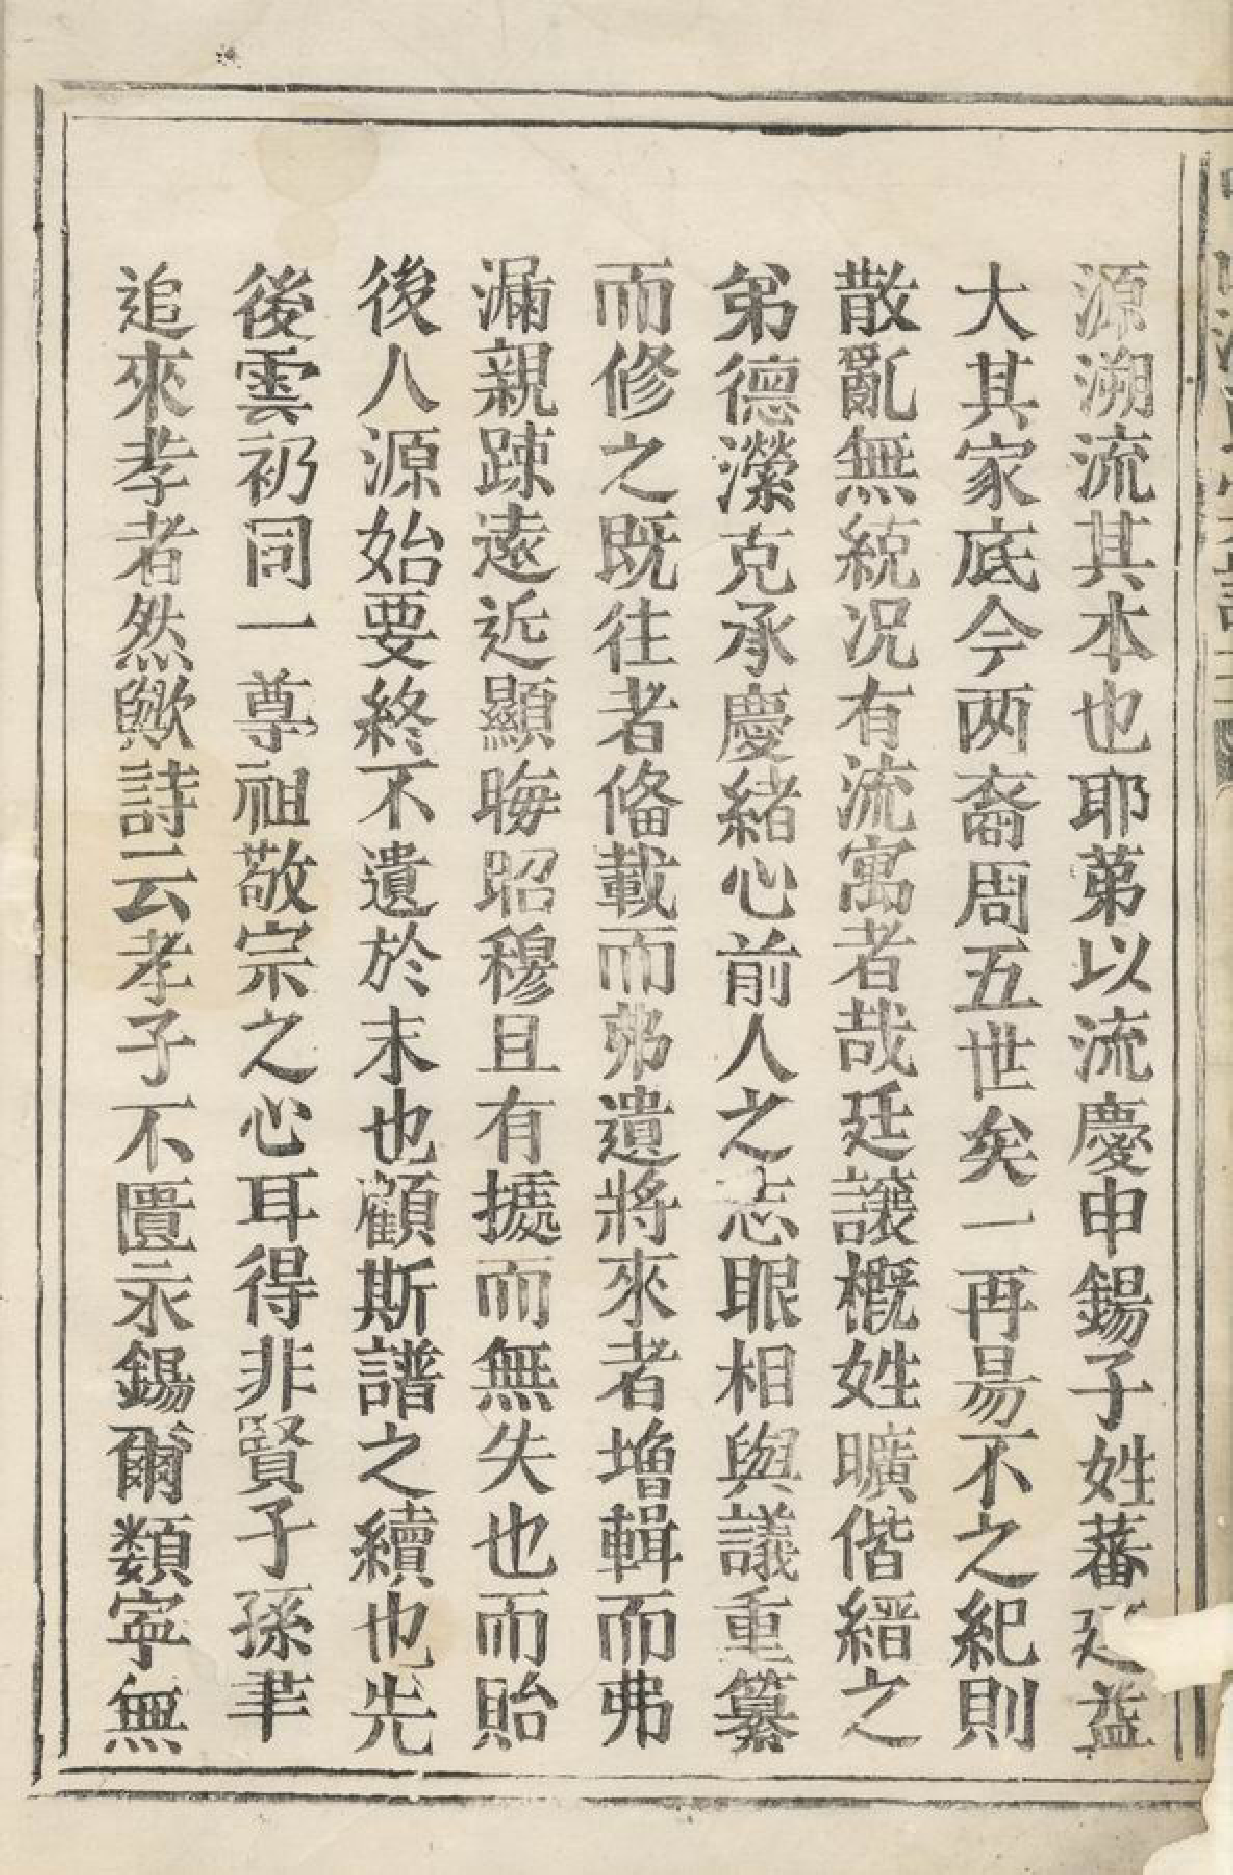 源溯流其本也耶苐以流慶申錫子姓蕃廷益
大其家底今两裔周五世矣一再易不之紀則
散亂無統况有流寓者哉廷讓概姓曠偕縉之
弟德瀠克承慶緒心前人之志眼相與議重纂
而修之既往者俻載而弗遺將來者増輯而弗
漏親踈遠近顯晦昭穆且有摅而無失也而貽
後人源始要終不遺於末也顧斯譜之續也先
後雲礽同一尊祖敬宗之心耳得非賢子孫聿
追來孝者然歟詩云孝子不匱永錫爾類寜無